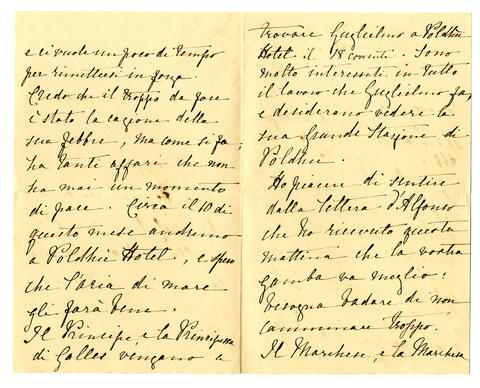 e ci vuole un poco di tempo
per rimettersi in forza.
Credo che il troppo da fare
è stato la cagione della
sua febbre, ma come si fa,
ha tanti affari che non
ha mai un momento
di pace. Circa il 10 di
questo mese andremo
a Poldhu Hotel, e spero
che l'aria di mare
gli farà bene.
Il Principe, e la Principessa
di Galles vengano a
trovare Guglielmo a Poldhu
Hotel il 18 corrente. Sono
molto interessati in tutto
il lavoro che Guglielmo fa,
e desiderano vedere la
sua Grande Stazione di
Poldhu.
Ho piacere di sentire
dalla lettera d'Alfonso
che ho ricevuto questa
mattina che la vostra
gamba va meglio:
bisogna badare di non
camminare troppo.
Il Marchese, e la Marchesa